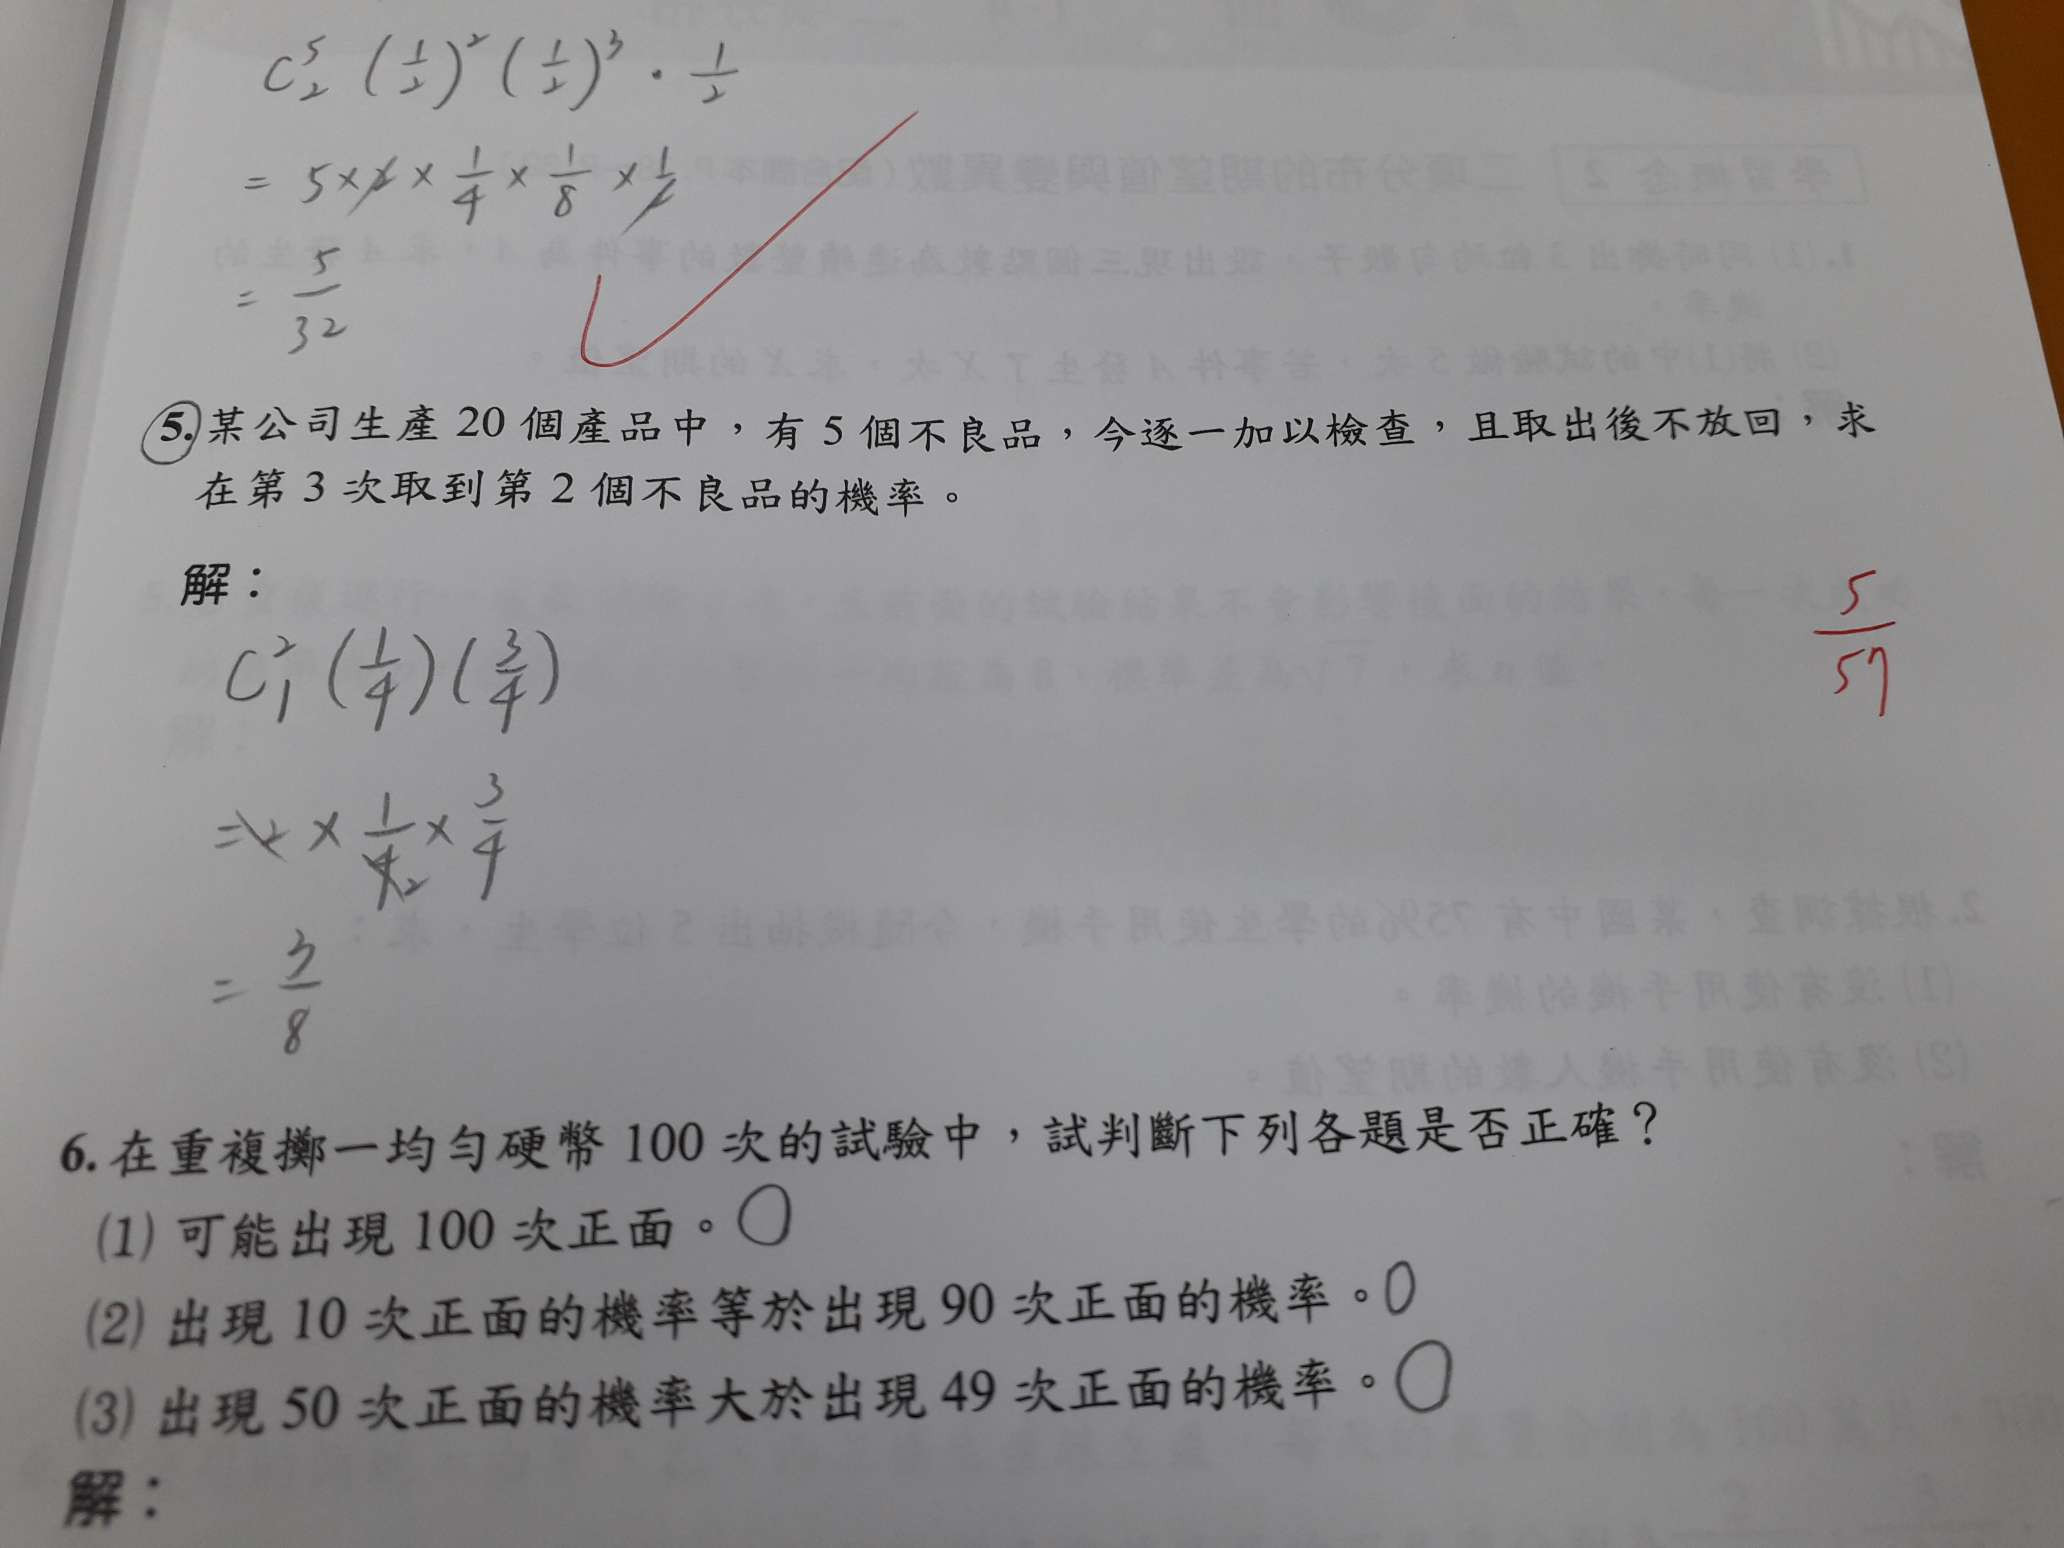 C⁵₂ (1/2)² (1/2)³ · 1/2
= 5 × 2 × 1/4 × 1/8 × 1/2
= 5/32
5. 某公司生產 20 個產品中，有 5 個不良品，今逐一加以檢查，且取出後不放回，求
在第 3 次取到第 2 個不良品的機率。
解：
5/57
C²₁ (1/4) (3/4)
= 2 × 1/4 2 × 3/4
= 3/8
6. 在重複擲一均勻硬幣 100 次的試驗中，試判斷下列各題是否正確？
(1) 可能出現 100 次正面。O
(2) 出現 10 次正面的機率等於出現 90 次正面的機率。O
(3) 出現 50 次正面的機率大於出現 49 次正面的機率。O
解：